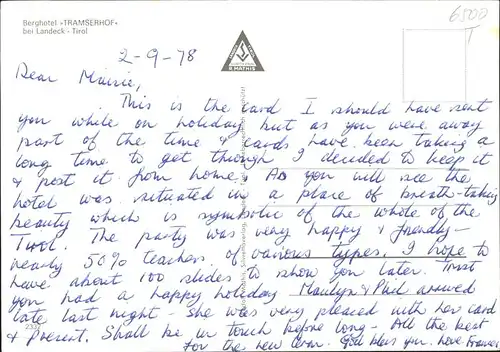 Berghotel »TRAMSERHOF«
bei Landeck - Tirol
6500
T
2-9-78
Dear Mairie,
This is the card I should have sent
you while on holiday but as you were away
part of the time & cards have been taking a
long time to get through I decided to keep it
& post it from home. As you will see the
hotel was situated in a place of breath-taking
beauty which is symbolic of the whole of the
Tirol. The party was very happy & friendly -
nearly 50% teachers of various types. I hope to
have about 100 slides to show you later. Trust
you had a happy holiday Marilyn & Phil arrived
late last night - she was very pleased with her card
& present. Shall be in touch before long - All the best
for the new term. God bless you, love Frances
R MATHIS
2332